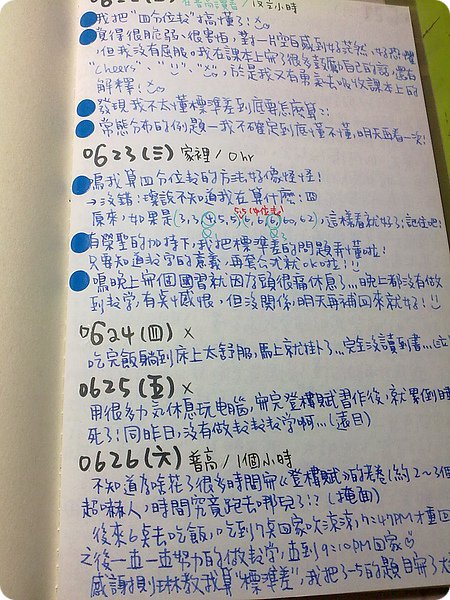 我把"四分位數"搞懂了!
覺得很脆弱、很害怕,對一片空白感到好茫然、好恐懼
但我沒有屈服。我在課本上寫了很多鼓勵自己的話,還有
"cheers"、"
於是我又有勇氣去吸收課本上的
解釋:
發現我不太懂標準差到底要怎麼算::
常態分布的例題—我不確定到底懂不懂,明天再看一次!
0623(三) 家裡/0hr
寫我算四分位數的方法好像怪怪!
→沒錯!證說不知道我在算什麼:四
5.5(中位數)
原來,如果是(3,3,④,5,5,6,⑥,60,62),這樣看就好了!記住吧!
有榮聖的加持下,我把標準差的問題弄懂啦!
只要知道數字的意義,再套公式就OK啦!!!
嗚晚上寫個國習就因為頭很痛休息了...晚上都沒有做
到數學,有美中感恨,但沒關係,明天再補回來就好!
0624(四) ×
吃完飯躺到床上太舒服,馬上就掛了...完全沒讀到書...
0625(五) ×
用很多力氣休息玩電腦,寫完登樓賦習作後,就累倒睡
死了!同昨日,沒有做數數數學啊...(遠目)
0626(六) 普高/1個小時
不知道為啥花了很多時間寫《登樓賦》的卷(約2~3個
超嚇人,時間究竟跑去哪兒了!?(掩面)
後來6點去吃飯,吃到7點回家吹涼涼,7:47PM才重回
之後一直一直努力的做數學,直到9:10PM回家
感謝 教我算"標準差",我把1~5的題目寫了